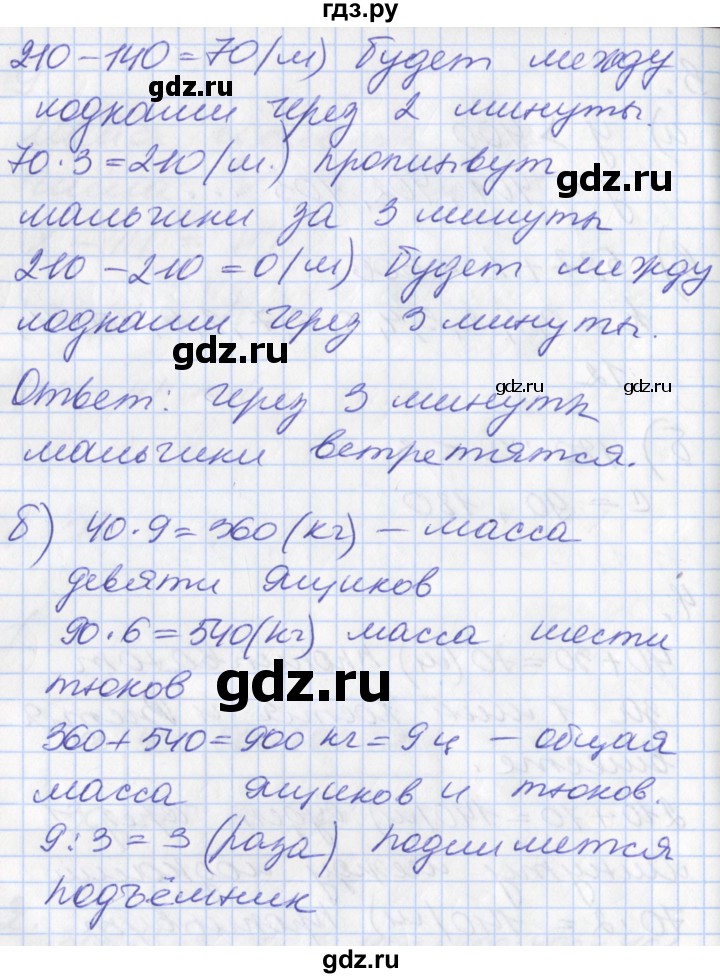 гдз.ру
210 – 140 = 70 (м) будет между
лодками через 2 минуты.
70 · 3 = 210 (м.) проплывут
мальчики за 3 минуты
210 – 210 = 0 (м) будет между
лодками через 3 минуты.
Ответ: через 3 минуты
мальчики встретятся.
б) 40 · 9 = 360 (кг) – масса
девяти ящиков
90 · 6 = 540 (кг) масса шести
тюков
360 + 540 = 900 кг = 9 ц – общая
масса ящиков и тюков.
9 : 3 = 3 (раза) поднимется
подъёмник
gdz.ru
gdz.ru
gdz.ru
gdz.ru
gdz.ru
gdz.ru
gdz.ru
gdz.ru
gdz.ru